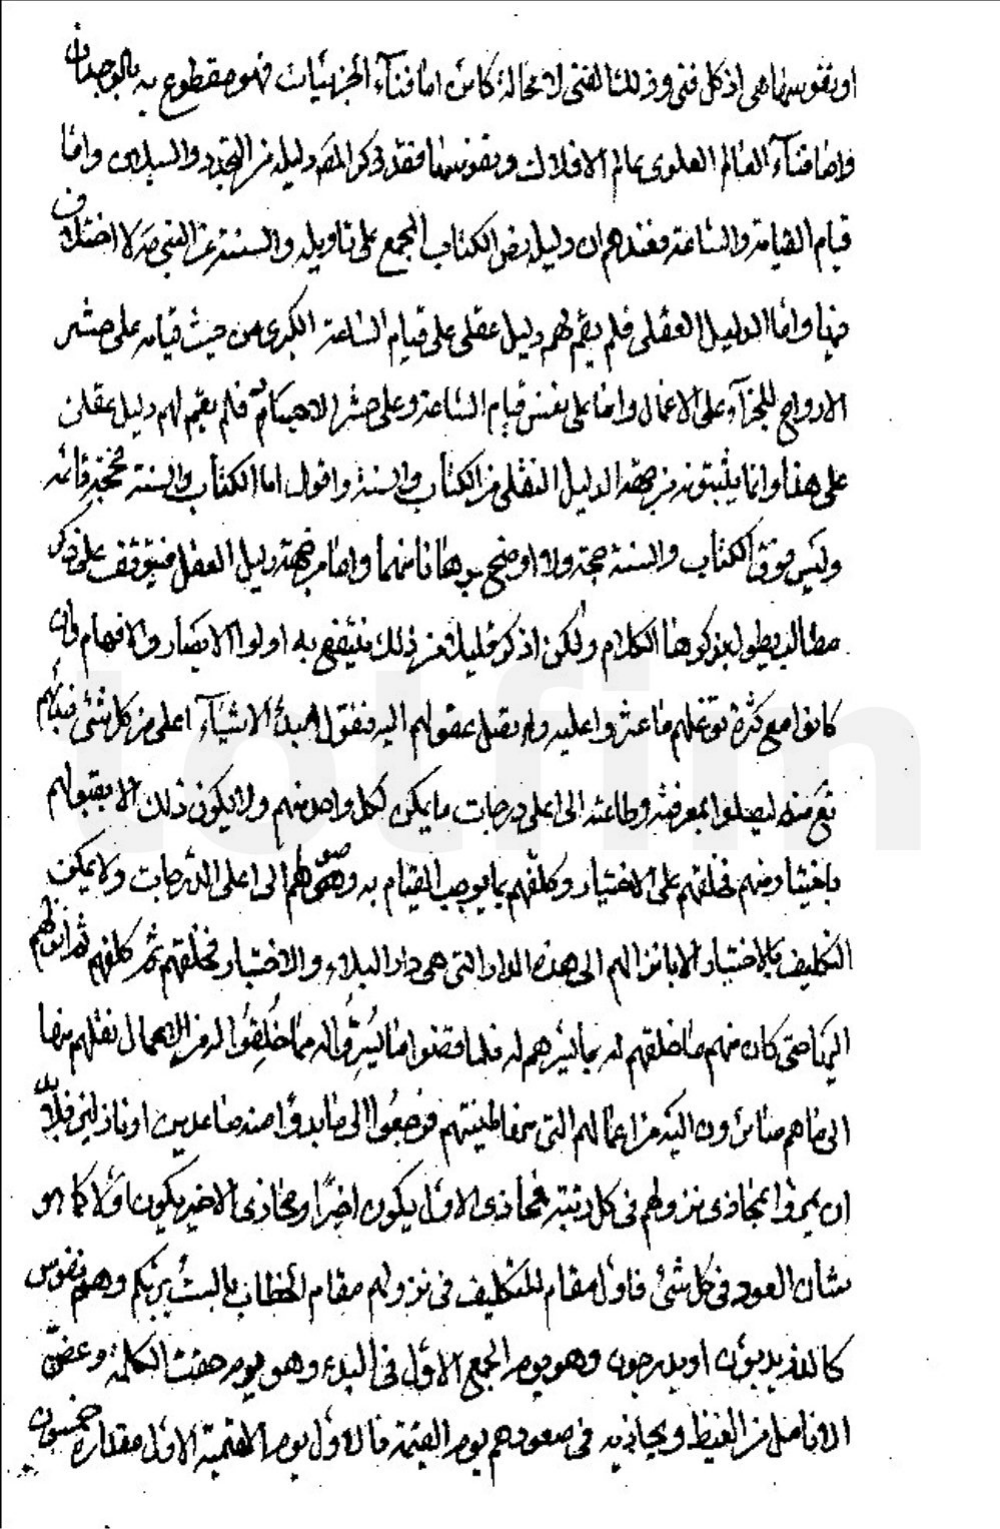 او نفوسها هي اذ كل فني وذلك الفني لا محالة كائن اما فناء الجزئيات فهو مقطوع به بالوجدان
واما فناء العالم العلوي عالم الافلاك ونفوسها فقد ذكر المصـ دليله من التجدد والسيلان واما
قيام القيامة والساعة فعندهم ان دليله نص الكتاب المجمع على تاويله والسنة عن النبي صـ لا اختلاف
فيها واما الدليل العقلي فلم يقم لهم دليل عقلي على قيام الساعة الكبرى من حيث قيامه على حشر
الارواح للجزآء على الاعمال واما على نفس قيام الساعة وعلى حشر الاجسام فلم يقم لهم دليل عقلي
على هذا وانما يثبتونه من جهة الدليل النقلي من الكتاب والسنة واقول اما الكتاب والسنة فحجة قائمة
وليس فوق الكتاب والسنة حجة ولا اوضح برهانا منهما واما من جهة دليل العقل فيتوقف على ذكر
مطالب يطول بذكرها الكلام ولكن اذكر قليلا من ذلك ينتفع به اولوا الابصار والافهام وان
كانوا مع كثرة توغلهم ما عثروا عليه ولم تصل عقولهم اليه فنقول مبدء الاشياء اعلى من كل شئ فبدأهم
تع منه ليصلوا بمعرفته وطاعته الى اعلى درجات ما يمكن لكل واحد منهم ولا يكون ذلك الا بقبولهم
باختيار منهم فخلقهم على الاختيار وكلفهم بما يوجب القيام به وصولهم الى اعلى الدرجات ولا يمكن
التكليف بالاختيار الا بانزالهم الى هذه الدار التي هي دار البلاء والاختبار فخلقهم ثم كلفهم ثم انزلهم
اليها حتى كان منهم ما خلقهم له بما يسرهم له فلما قضوا ما يُسِّرُوا له مما خُلِقُوا له من الاعمال نقلهم منها
الى ما هم صائرون اليه من اعمالهم التي منها طينتهم فرجعوا الى ما بدؤا منه صاعدين او نازلين فلا بد
ان يمروا بمحاذي نزولهم في كل رتبة فمحاذي الاول يكون اخرا ومحاذي الاخير يكون اولا كما هو
شان العود في كل شئ فاول مقام للتكليف في نزولهم مقام الخطاب بالست بربكم وهم نفوس
كالذر يدبون او يدرجون وهو يوم الجمع الاول في البدء وهو يوم حقت الكلمة وعض
الانامل من الغيظ ويحاذيه في صعودهم يوم القيمة فالاول يوم القيمة الاول مقداره خمسون